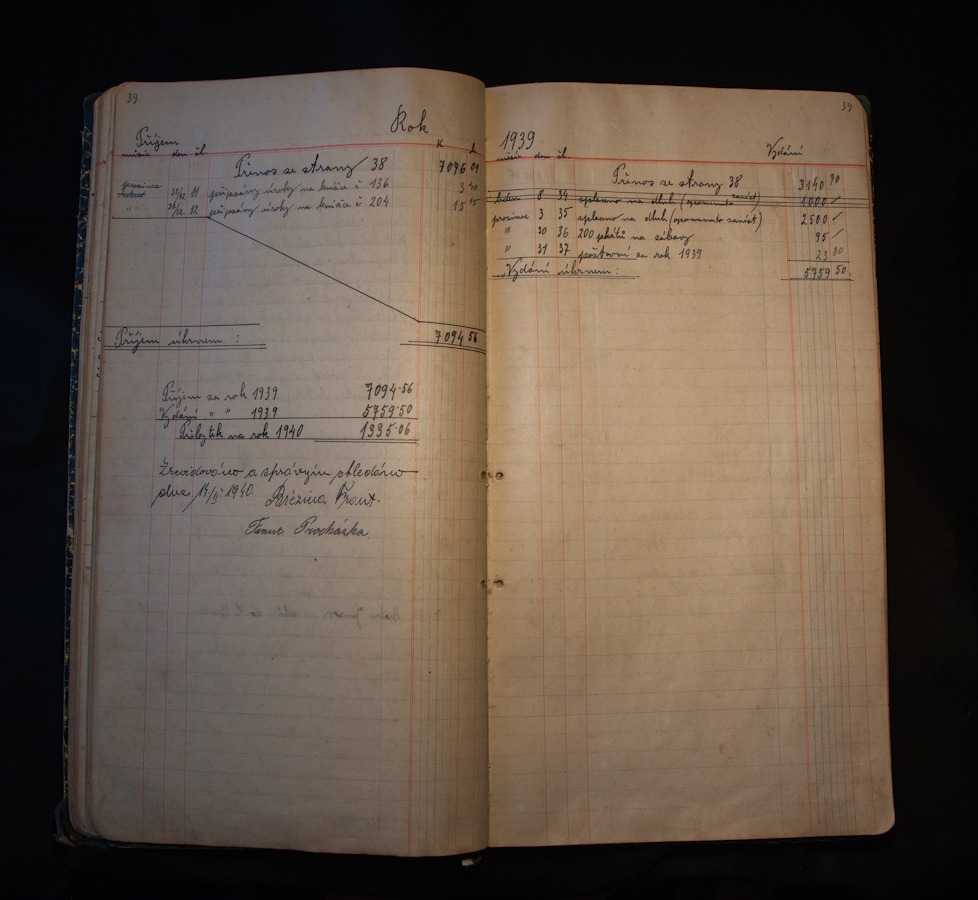 39
Rok
Příjem
měsíc den čl. K h
Přenos se strany 38 7076 01
prosinec 31/12 11 připsány úroky na knížce č 136 3 10
" 31/12 12 připsány úroky na knížce č 204 15 45
Příjem úhrnem : 7094 56
Příjem za rok 1939 7094·56
Vydání " " 1939 5759·50
Přibytek na rok 1940 1335·06
Zrevidováno a správným shledáno
dne 14/II 1940. Březina Frant.
Frant. Procházka.
39
1939
Vydání
měsíc den čl.
Přenos se strany 38 3140 70
leden 8 34 splaceno na dluh (opomenuto zanést) 1000 /
prosinec 3 35 splaceno na dluh (opomenuto zanést) 2500 /
" 30 36 200 plakátů na zábavy 95 /
" 31 37 poštovní za rok 1939 23 80
Vydání úhrnem : 5759 50.